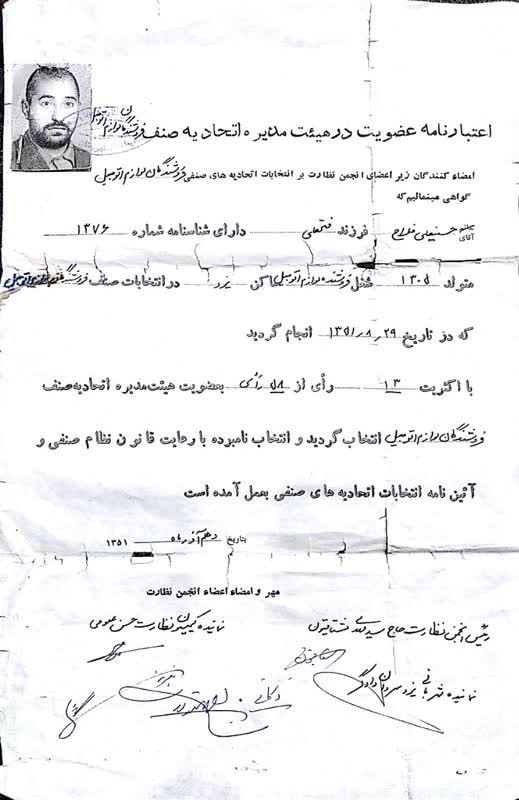 فروشندگان لوازم اتومبیل
اعتبارنامه عضویت در هیئت مدیره اتحادیه صنف فروشندگان لوازم اتومبیل
امضاء کنندگان زیر اعضای انجمن نظارت بر انتخابات اتحادیه های صنفی فروشندگان لوازم اتومبیل
گواهی مینمائیم که
آقای حسینعلی فلاح فرزند فتحعلی دارای شناسنامه شماره ۱۳۷۶
متولد ۱۳۰۵ شغل فروشنده لوازم اتومبیل ساکن یزد در انتخابات صنف فروشندگان لوازم اتومبیل
که در تاریخ ۲۹ ر ۸ ر ۱۳۵۱ انجام گردید
با اکثریت ۱۳ رأی از ۵۸ رأی بعضویت هیئت مدیره اتحادیه صنف
فروشندگان لوازم اتومبیل انتخاب گردید و انتخاب نامبرده با رعایت قانون نظام صنفی و
آئین نامه انتخابات اتحادیه های صنفی بعمل آمده است
بتاریخ دهم آذر ماه ۱۳۵۱
مهر و امضاء اعضاء انجمن نظارت
رئیس انجمن نظارت حاج سید مهدی
نماینده کمیسیون نظارت حسن عمومی
نماینده شهربانی یزد